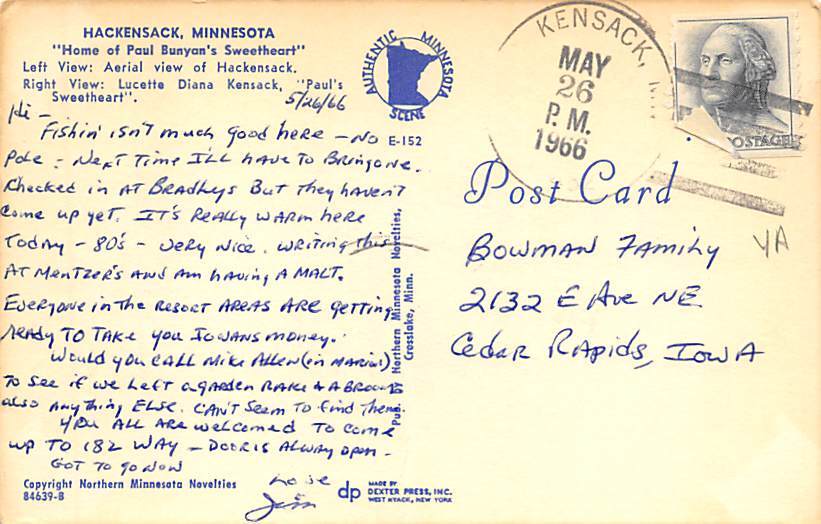 HACKENSACK, MINNESOTA
"Home of Paul Bunyan's Sweetheart"
Left View: Aerial view of Hackensack.
Right View: Lucette Diana Kensack, "Paul's
Sweetheart".
5/26/66
Hi -
Fishin' isn't much good here - NO
Pole - Next Time I'LL HAVE TO Bring one.
Checked in AT Bradleys But They haven't
Come up yet. IT'S Really WARM here
Today - 80's - very Nice. writing this
AT Mentzer's AND Am having A MALT.
Everyone in the Resort AREAS ARE getting
Ready TO TAKE you Iowans money.
Would you CALL Mike Allen (in Marion)
To See if we Left a garden RAKE & A Broom
also Anything ELSE. CAN'T Seem To find Them.
You ALL ARE welcomed To come
up TO 182 WAY - Door is Alway open -
GOT TO go NOW
Love
Jim
Copyright Northern Minnesota Novelties
84639-B
AUTHENTIC MINNESOTA
SCENE
E-152
Pub. by Northern Minnesota Novelties,
Crosslake, Minn.
dp
MADE BY
DEXTER PRESS, INC.
WEST NYACK, NEW YORK
KENSACK,
MAY
26
P.M.
1966
OSTAGE
Post Card
Bowman Family
2132 E Ave NE
Cedar Rapids, Iowa